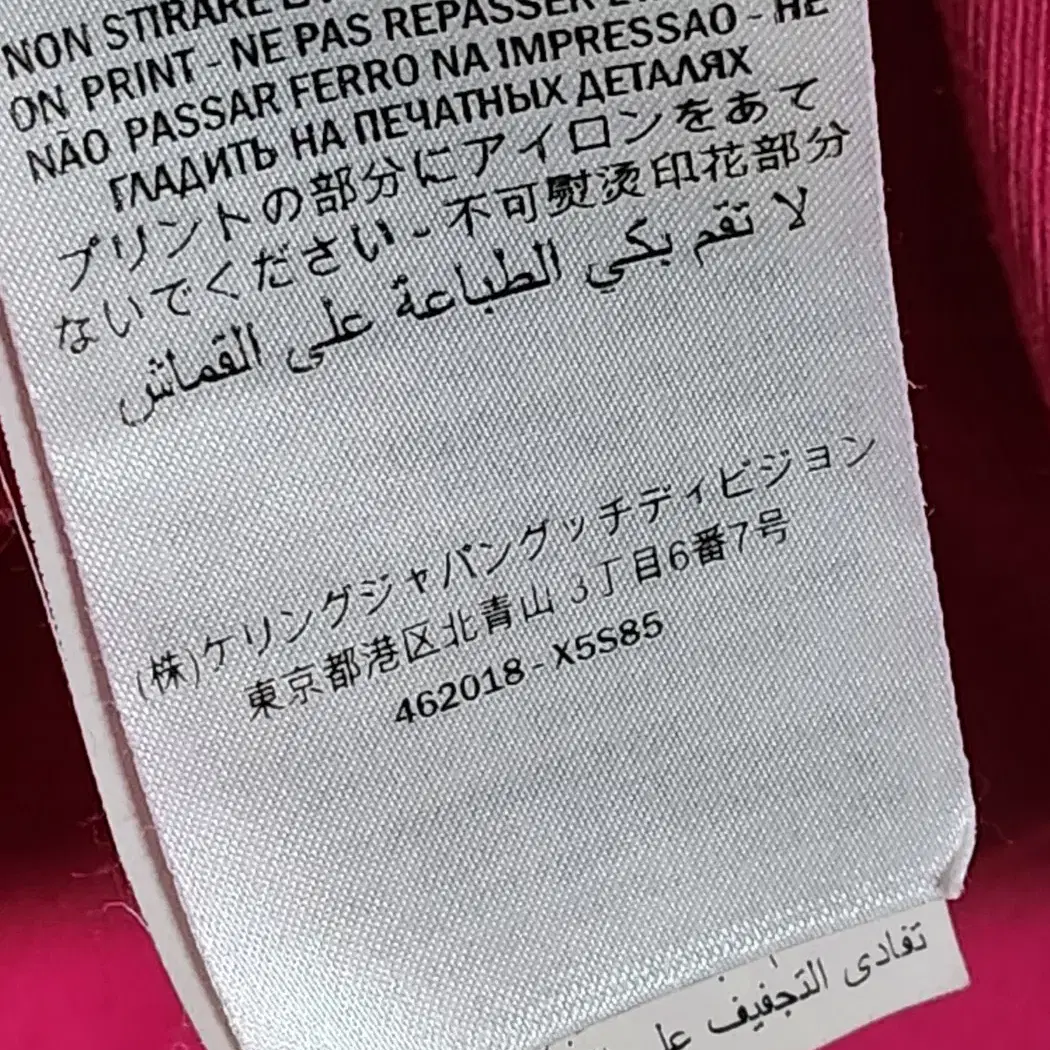 NON STIRARE
ON PRINT - NE PAS REPASSER
NÃO PASSAR FERRO NA IMPRESSAO - НЕ
ГЛАДИТЬ НА ПЕЧАТНЫХ ДЕТАЛЯХ
プリントの部分にアイロンをあて
ないでください - 不可熨烫印花部分
لا تقم بكي الطباعة على القماش
(株)ケリングジャパングッチディビジョン
東京都港区北青山 3丁目6番7号
462018 - X5S85
تفادى التجفيف